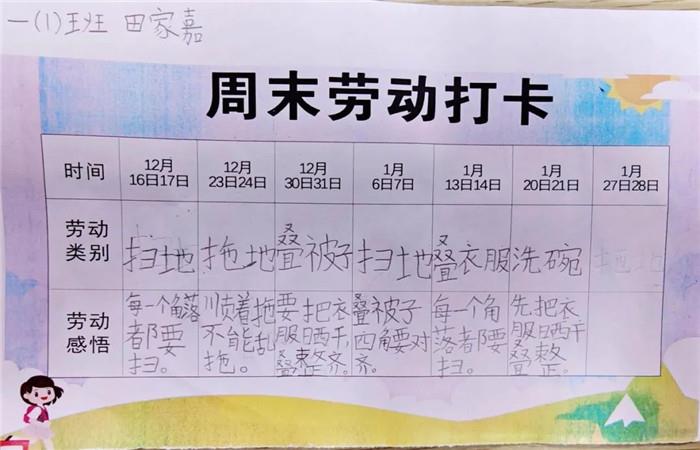 一(1)班 田家嘉
周末劳动打卡
时间 12月16日17日 12月23日24日 12月30日31日 1月6日7日 1月13日14日 1月20日21日 1月27日28日
劳动类别 扫地 拖地 叠被子 扫地 叠衣服 洗碗 拖地
劳动感悟 每一个角落者都要扫。 顺着拖不能乱拖。 要把衣服日晒干,叠整齐。 叠被子四角要对齐。 每一个角落者都要扫。 先把衣服日晒干叠整